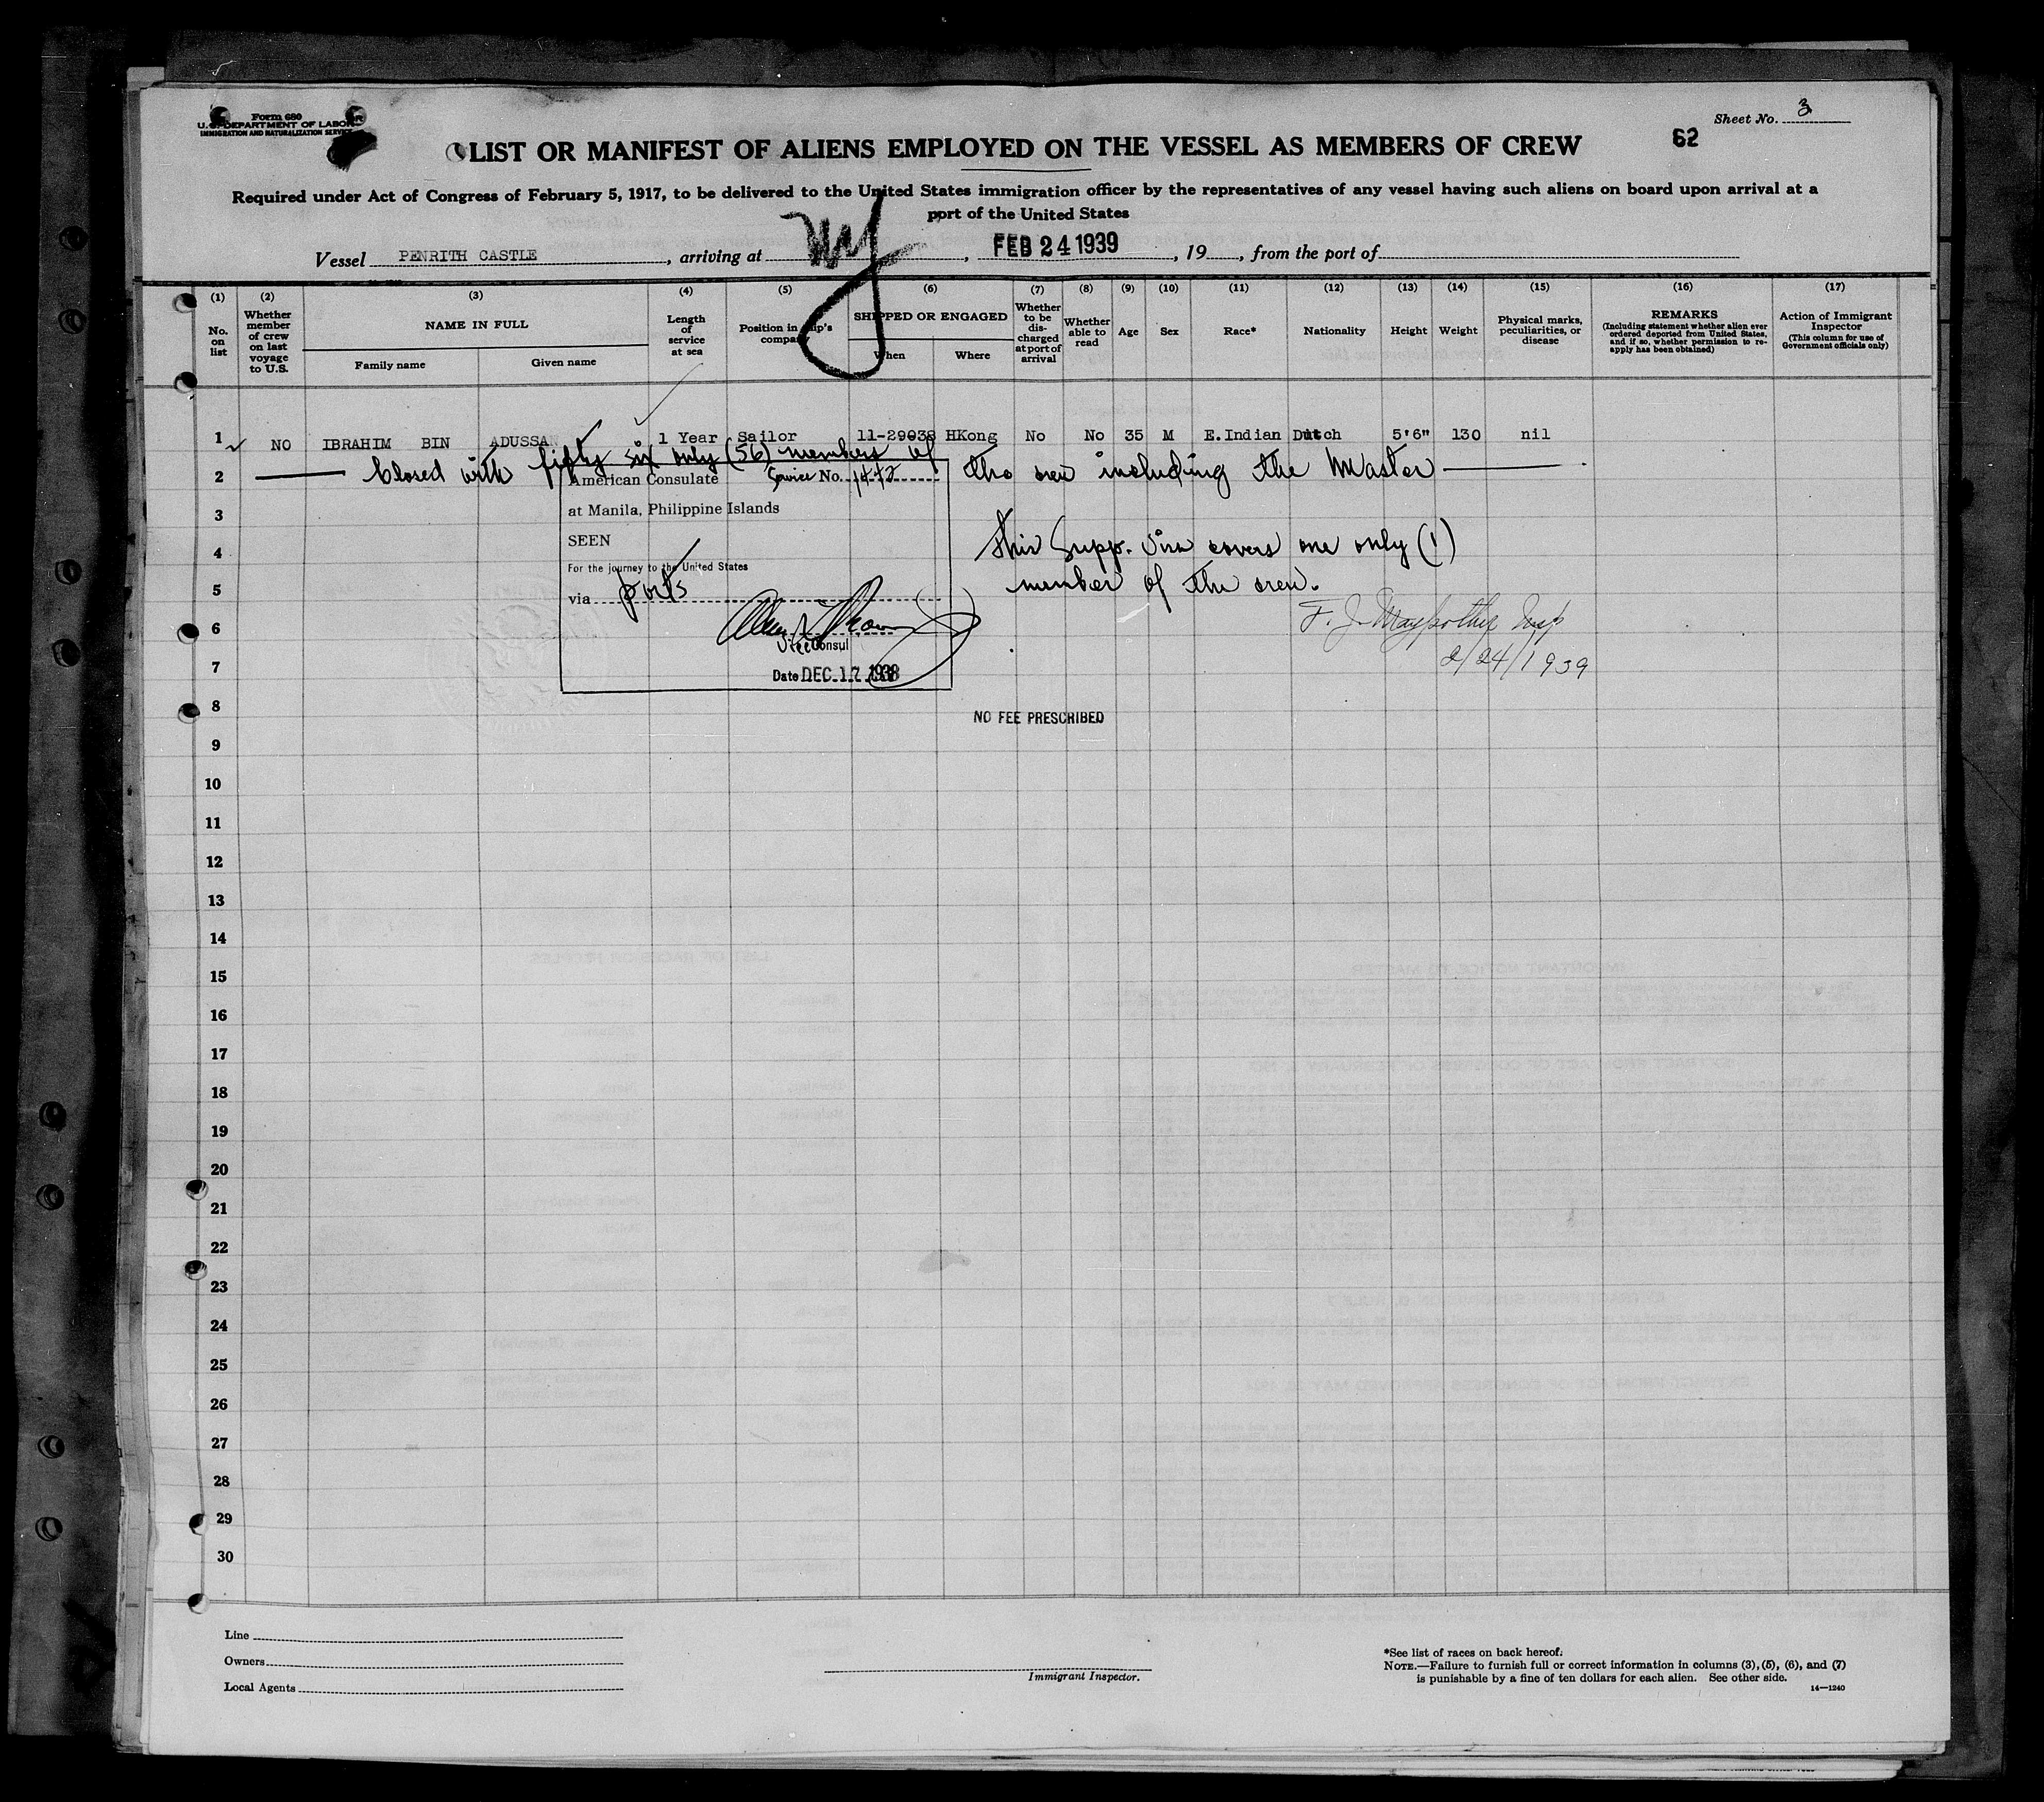 Form 680
U. S. DEPARTMENT OF LABOR
IMMIGRATION AND NATURALIZATION SERVICE
Sheet No. 3
62
LIST OR MANIFEST OF ALIENS EMPLOYED ON THE VESSEL AS MEMBERS OF CREW
Required under Act of Congress of February 5, 1917, to be delivered to the United States immigration officer by the representatives of any vessel having such aliens on board upon arrival at a
port of the United States
Vessel PENRITH CASTLE, arriving at NY, FEB 24 1939, 19, from the port of
(1) (2) (3) (4) (5) (6) (7) (8) (9) (10) (11) (12) (13) (14) (15) (16) (17)
No. on list
Whether member of crew on last voyage to U.S.
NAME IN FULL
Family name
Given name
Length of service at sea
Position in ship's company
SHIPPED OR ENGAGED
When
Where
Whether to be discharged at port of arrival
Whether able to read
Age
Sex
Race*
Nationality
Height
Weight
Physical marks, peculiarities, or disease
REMARKS
(Including statement whether alien ever ordered deported from United States, and if so, whether permission to reapply has been obtained)
Action of Immigrant Inspector
(This column for use of Government officials only)
1 NO IBRAHIM BIN ADUSSAN 1 Year Sailor 11-29038 HKong No No 35 M E.Indian Dutch 5'6" 130 nil
2 Closed with fifty six only (56) members of the crew including the Master
American Consulate Service No. 1472
3 at Manila, Philippine Islands
SEEN
4 This Supp. visa covers one only (1)
For the journey to the United States
5 member of the crew.
via ports
6 F. J. Insp
Vice Consul
7 2/24/1939
Date DEC. 17 1938
8 NO FEE PRESCRIBED
9
10
11
12
13
14
15
16
17
18
19
20
21
22
23
24
25
26
27
28
29
30
Line
Owners
Local Agents
Immigrant Inspector.
*See list of races on back hereof.
NOTE.—Failure to furnish full or correct information in columns (3), (5), (6), and (7)
is punishable by a fine of ten dollars for each alien. See other side.
14—1240